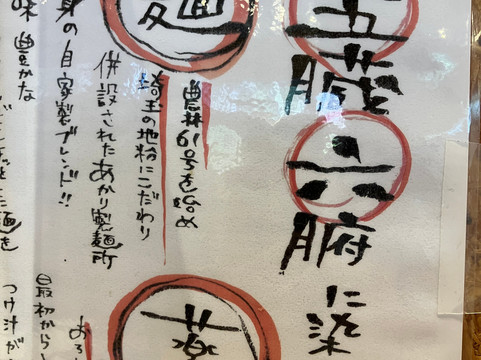 五臓六腑に染
麺
農林61号を始め
埼玉の地粉にこだわり
併設されたあかり製麺所
身の自家製ブレンド!!
味豊かな
薬
最初から
つけ汁が